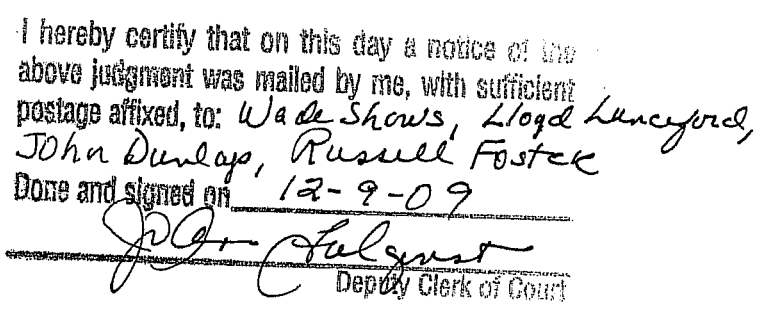 I hereby certify that on this day a notice of the
above judgment was mailed by me, with sufficient
postage affixed, to: Wade Shows, Lloyd Lunceford,
John Dunlap, Russell Foster
Done and signed on 12-9-09
Deputy Clerk of Court